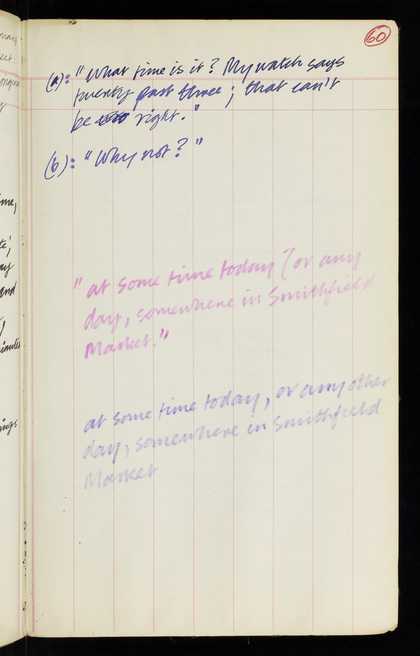 60
(a): "What time is it? My watch says
twenty past three; that can't
be right."
(b): "Why not?"
"at some time today [or any
day, somewhere in Smithfield
Market."
at some time today, or any other
day, somewhere in Smithfield
Market